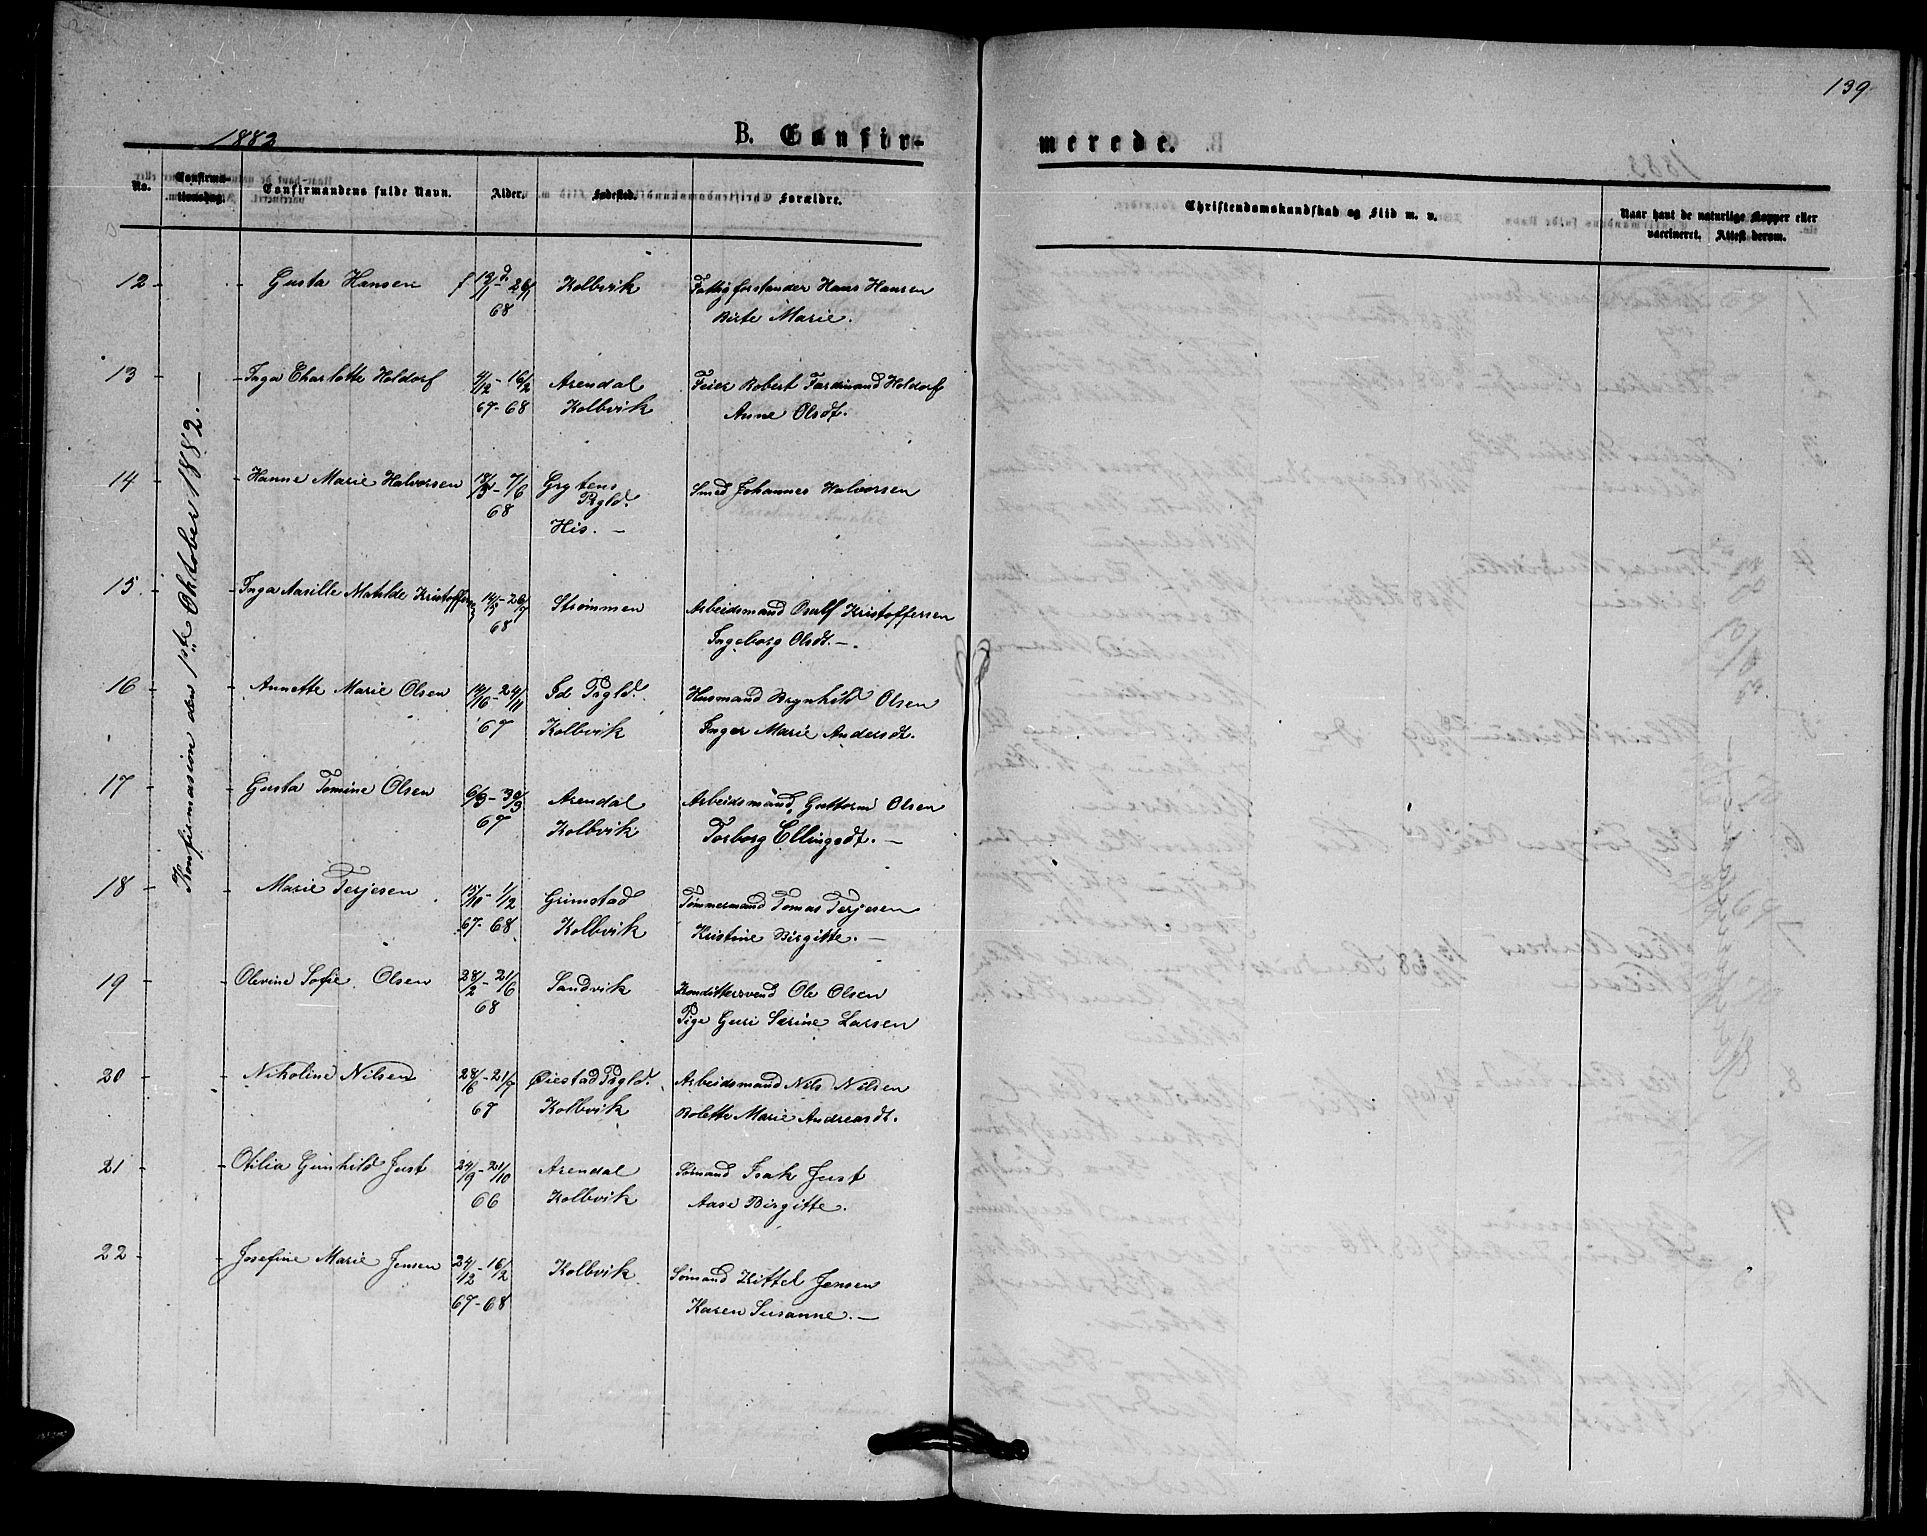 139
1882
B. Confir-
merede.
No.
Confirma-
tionsdag.
Confirmandens fulde Navn.
Alder.
Fødested.
Forældre.
Christendomskundskab og Flid m. v.
Naar havt de naturlige Kopper eller
vaccineret. Attest derom.
Konfirmasion den 1ste Oktober 1882. —
12 - - Gusta Hansen f 12/11 d. 26/11 Kolbvik Fattigforstander Hans Hansen
68 Birte Marie.
13 - - Inga Charlotte Holdorf 4/12 - 16/2 Arendal Feier Robert Ferdinand Holdorf
67-68 Kolbvik Anne Olsdt.
14 - - Hanne Marie Halvorsen - 7/6 Grytens Smed Johannes Halvorsen
68 Prgld.
His. —
15. - - Inga Aasille Matilde Kristoffersen - 26/7 Strømmen Arbeidsmand Osulf Kristoffersen
68 Ingeborg Olsdt. —.
16 - - Annette Marie Olsen - 24/11 Id Prgld. Husmand Brynhild Olsen
67 Kolbvik Inger Marie Andersdt.
17 - - Gusta Tomine Olsen 6/3 - 30/3 Arendal Arbeidsmand Guttorm Olsen
67 Kolbvik Torborg Ellingsdt. —
18 - - Marie Terjesen 15/10 - 1/2 Grimstad Tømmermand Tomas Terjesen
67-68 Kolbvik Kristine Birgitte. —
19 - - Olevine Sofie Olsen 28/2 - 21/6 Sandvik Kondittersvend Ole Olsen
68 Pige Guri Serine Larsen
20 - - Nikoline Nilsen 28/6 - 21/7 Øiestad Prgld. Arbeidsmand Nils Nilsen
67 Kolbvik Bolette Marie Andreasdt.
21 - - Otilia Gunhild Just 24/9 - 21/10 Arendal Sømand Isak Just
66 Kolbvik Aase Birgitte.
22 - - Josefine Marie Jensen 24/12 - 16/2 Kolbvik Sømand Kittel Jensen
67-68 Karen Susanne. —